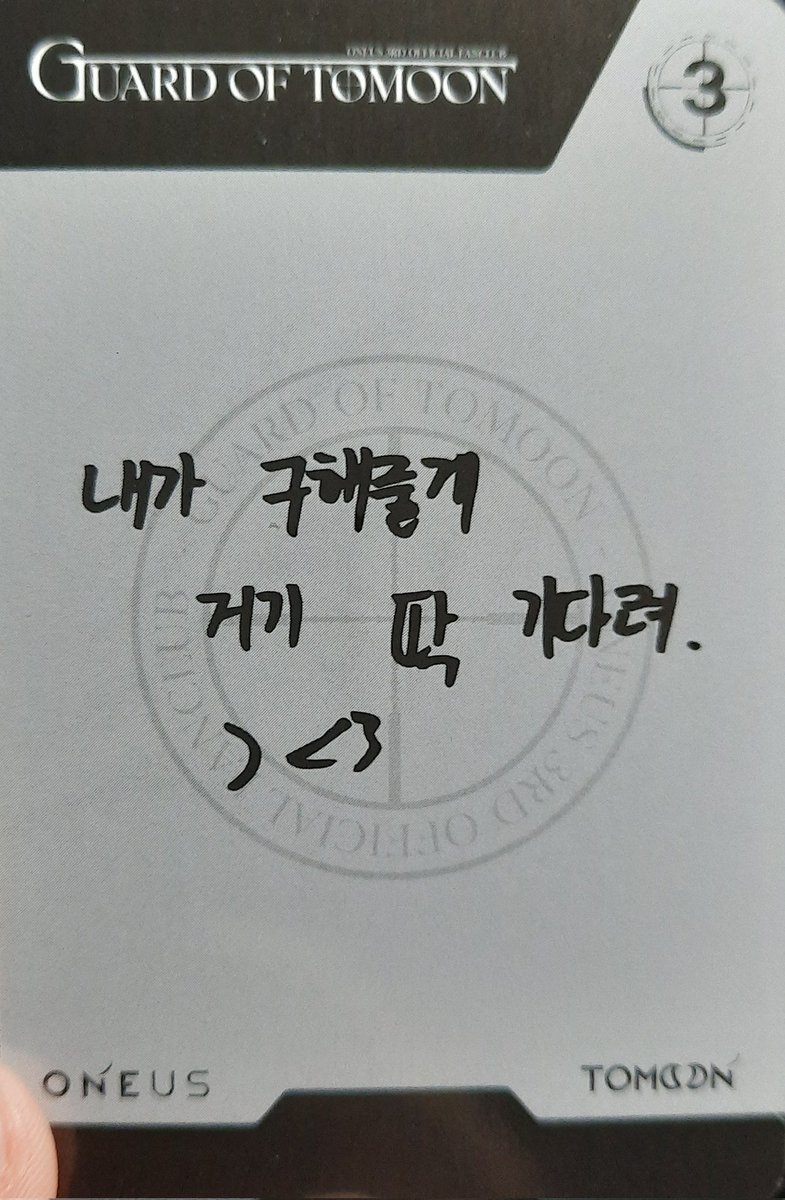 ONEUS 3RD OFFICIAL FANCLUB
GUARD OF TOMOON
3
GUARD OF TOMOON
ONEUS 3RD OFFICIAL FANCLUB
내가 구해줄게
거기 딱 기다려.
) <3
ONEUS
TOMOON